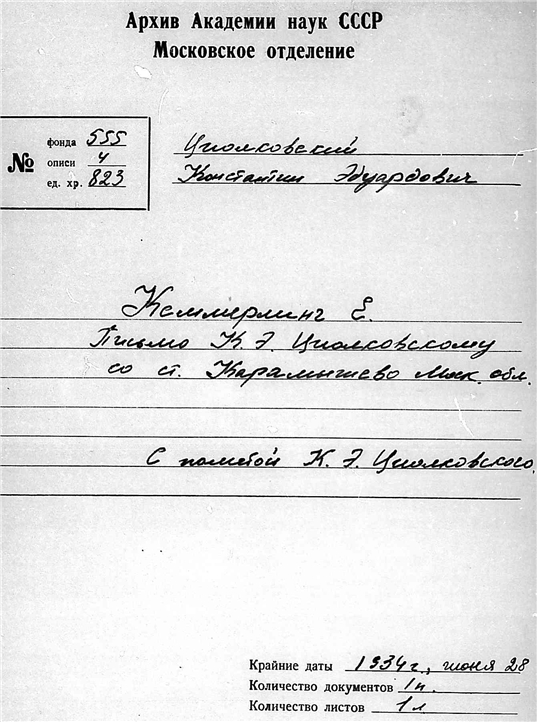 Архив Академии наук СССР
Московское отделение
№
фонда 555
описи 4
ед. хр. 823
Циолковский
Константин Эдуардович
Кеммерлинг Е.
Письмо К. Э. Циолковскому
со ст. Карамышево Моск. обл.
С пометой К. Э. Циолковского.
Крайние даты 1934 г., июня 28
Количество документов 1
Количество листов 1 л